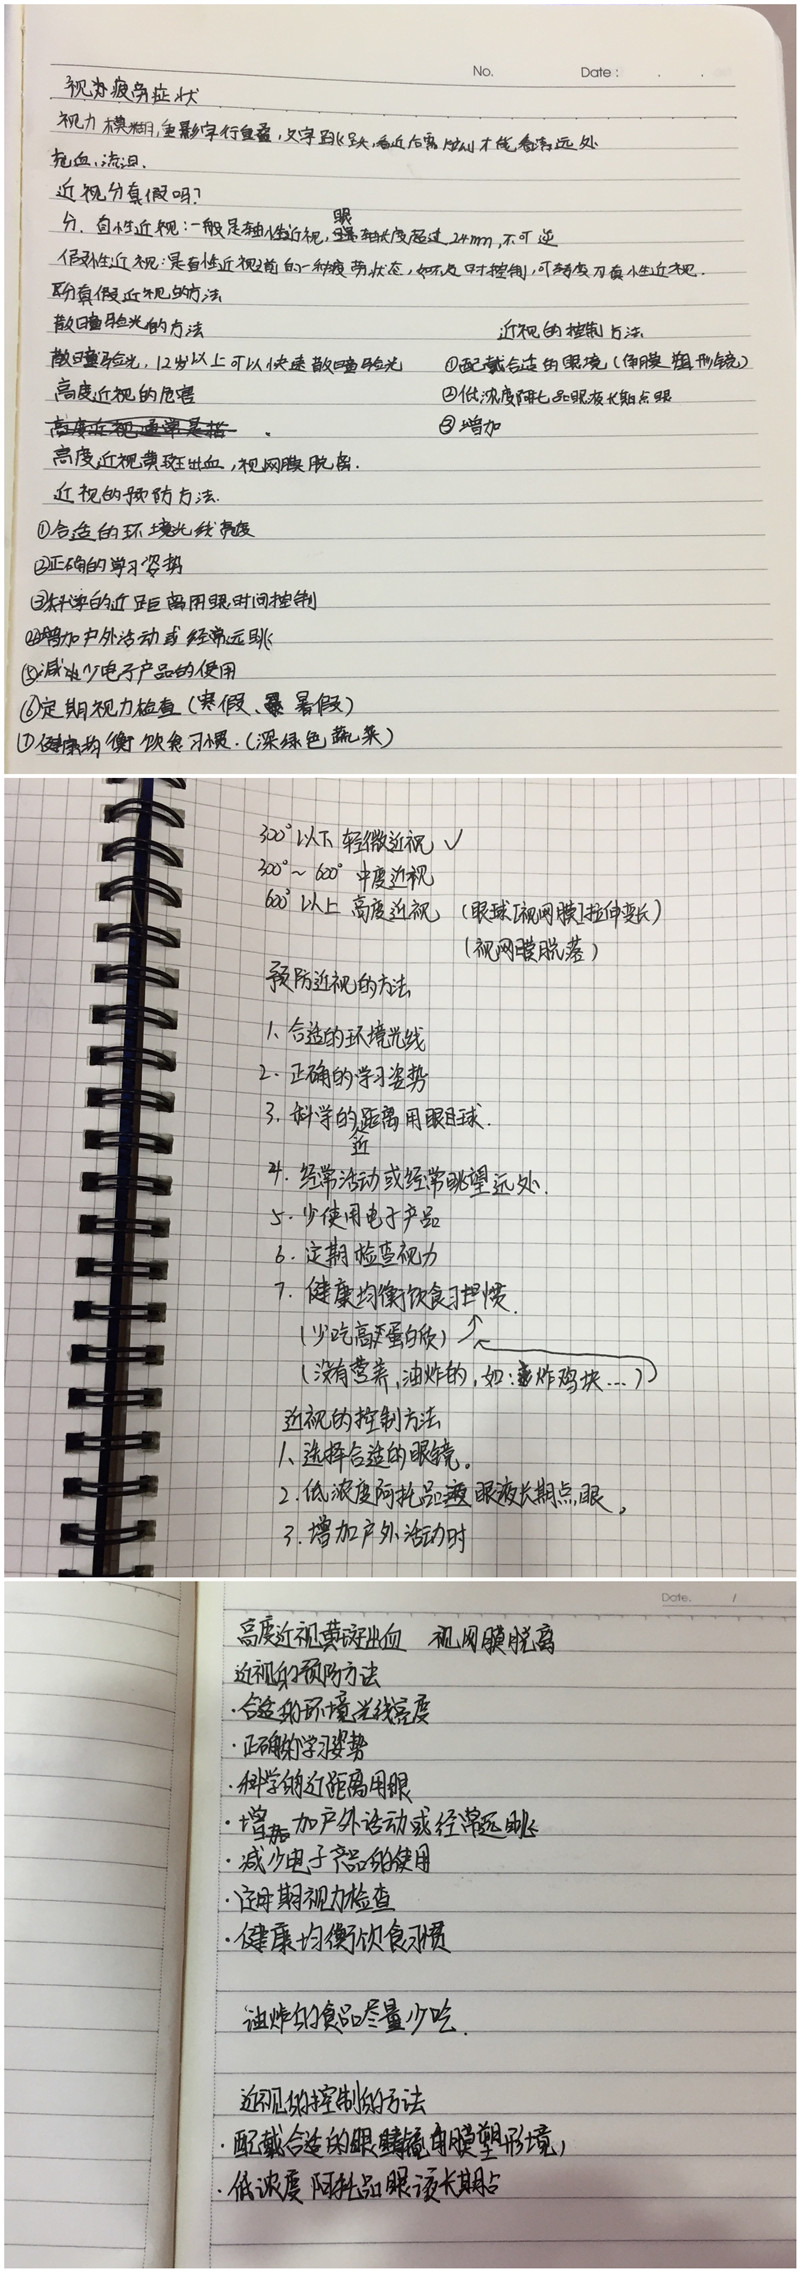 No. Date: . .
视力疲劳症状
视力模糊,重影字行重叠,文字跳跃,看近后需片刻才能看清远处
充血、流泪.
近视分真假吗?
分.真性近视:一般是轴性近视,眼轴长度超过24mm,不可逆
假性近视:是真性近视之前的一种疲劳状态,如不及时控制,可转变为真性近视.
区分真假近视的方法
散瞳验光的方法
散瞳验光,12岁以上可以快速散瞳验光
高度近视的危害
高度近视通常是指
高度近视黄斑出血,视网膜脱离.
近视的预防方法.
①合适的环境光线亮度
②正确的学习姿势
③科学的近距离用眼时间控制
④增加户外活动或经常远眺
⑤减少电子产品的使用
⑥定期视力检查(寒假、暑假)
⑦健康均衡饮食习惯.(深绿色蔬菜)
近视的控制方法
①配戴合适的眼境(角膜塑形镜)
②低浓度阿托品眼液长期点眼
③增加
300°以下轻微近视 ✓
300°~600°中度近视
600°以上高度近视 (眼球[视网膜]拉伸变长)
(视网膜脱落)
预防近视的方法
1、合适的环境光线
2.正确的学习姿势
3.科学的近距离用眼球.
4.经常活动或经常眺望远处.
5.少使用电子产品
6.定期检查视力
7.健康均衡饮食习惯.
(少吃高蛋白质)
(没有营养,油炸的,如:炸鸡块...)
近视的控制方法
1、选择合适的眼镜。
2.低浓度阿托品眼液长期点眼,
3.增加户外活动时
Date. /
高度近视黄斑出血 视网膜脱离
近视的预防方法
·合适的环境光线亮度
·正确的学习姿势
·科学的近距离用眼
·增加户外活动或经常远眺
·减少电子产品的使用
·定期视力检查
·健康均衡饮食习惯
油炸的食品尽量少吃.
近视的控制的方法
·配戴合适的眼镜角膜塑形境)
·低浓度阿托品眼液长期点